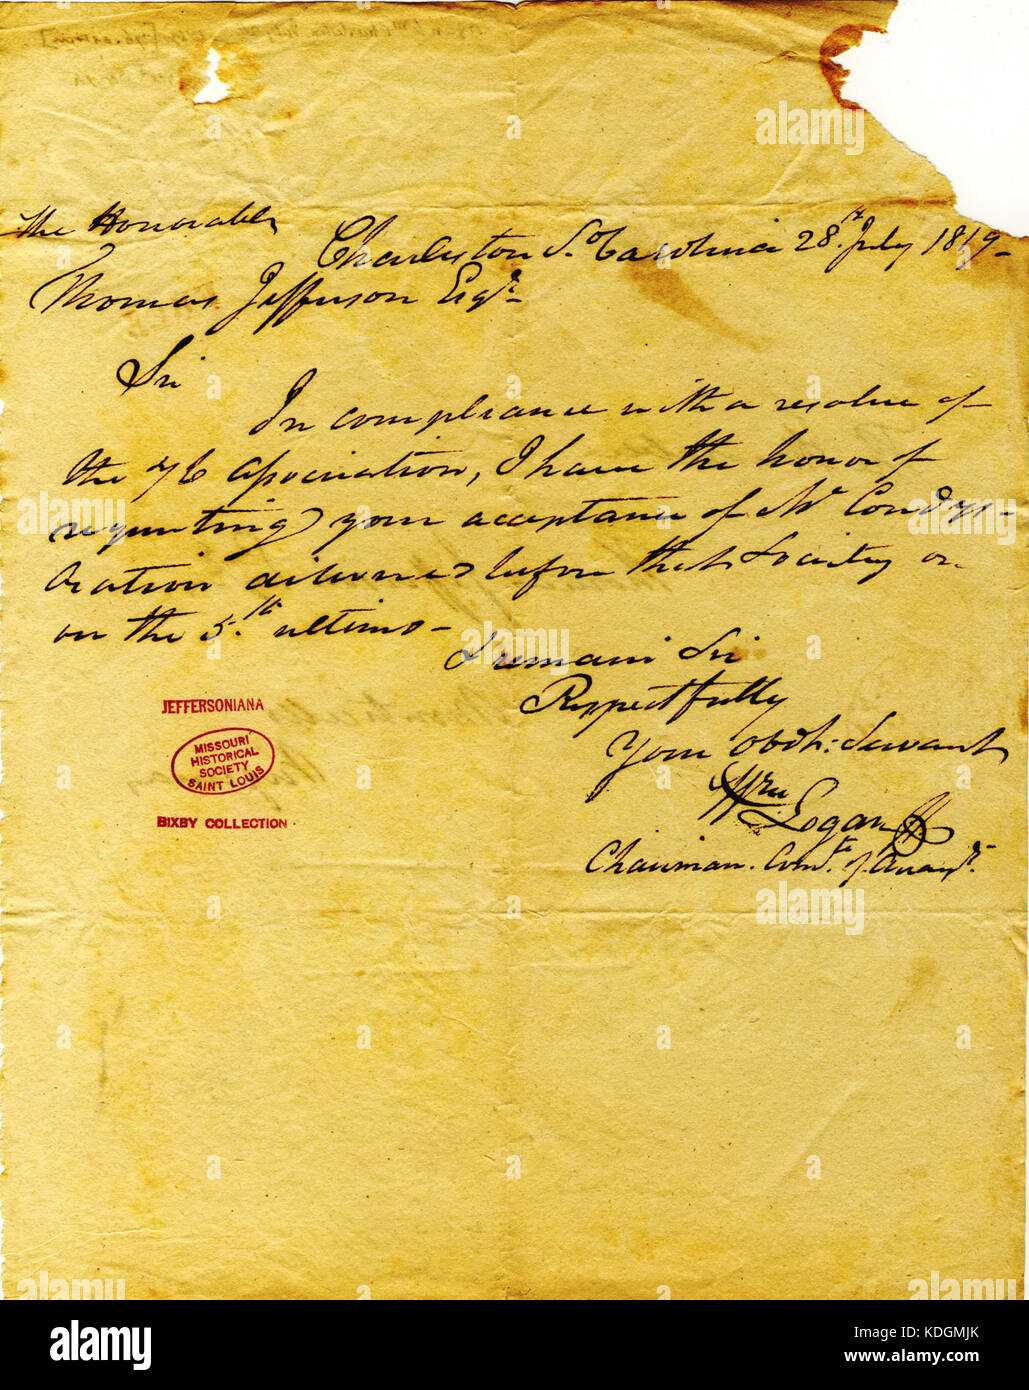 The Honorable
Charleston So. Carolina 28.th July 1819-
Thomas Jefferson Esqr.
Sir
In compliance with a resolve of
the 76 Association, I have the honor of
requesting your acceptance of Mr Condy's
Oration delivered before that Society on
on the 5.th ultimo-
I remain Sir
Respectfully
Your obdt: Servant
Wm Logan Jr
Chairman. Comte. of Arangts.
JEFFERSONIANA
MISSOURI
HISTORICAL
SOCIETY
SAINT LOUIS
BIXBY COLLECTION
alamy
alamy
alamy
alamy
Image ID: KDGMJK
www.alamy.com